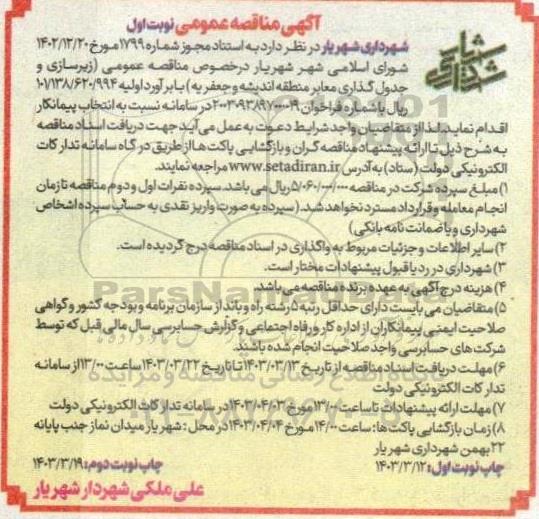 آگهی مناقصه عمومی نوبت اول
شهرداری شهریار در نظر دارد به استناد مجوز شماره ۱۷۹۹ مورخ ۱۴۰۲/۱۲/۲۰
شورای اسلامی شهر شهریار درخصوص مناقصه عمومی (زیرسازی و
جدول گذاری معابر منطقه اندیشه و جعفریه) با برآورد اولیه ۱۰۱/۱۳۸/۶۲۰/۹۹۴
ریال با شماره فراخوان ۲۰۰۳۰۹۳۸۹۷۰۰۰۰۱۹ در سامانه نسبت به انتخاب پیمانکار
اقدام نماید. لذا از متقاضیان واجد شرایط دعوت به عمل می آید جهت دریافت اسناد مناقصه
به شرح ذیل تا ارائه پیشنهاد مناقصه گران و بازگشایی پاکت ها از طریق درگاه سامانه تدارکات
الکترونیکی دولت (ستاد) به آدرس www.setadiran.ir مراجعه نمایند.
۱) مبلغ سپرده شرکت در مناقصه ۵/۰۶۰/۰۰۰/۰۰۰ ریال می باشد. سپرده نفرات اول و دوم مناقصه تا زمان
انجام معامله و قرارداد مسترد نخواهد شد. (سپرده به صورت واریز نقدی به حساب سپرده اشخاص
شهرداری و یا ضمانت نامه بانکی)
۲) سایر اطلاعات و جزئیات مربوط به واگذاری در اسناد مناقصه درج گردیده است.
۳) شهرداری در رد یا قبول پیشنهادات مختار است.
۴) هزینه درج آگهی به عهده برنده مناقصه می باشد.
۵) متقاضیان می بایست دارای حداقل رتبه ۵ رشته راه و باند از سازمان برنامه و بودجه کشور و گواهی
صلاحیت ایمنی پیمانکاران از اداره کار و رفاه اجتماعی و گزارش حسابرسی سال مالی قبل که توسط
شرکت های حسابرسی واجد صلاحیت انجام شده باشند.
۶) مهلت دریافت اسناد مناقصه از تاریخ ۱۴۰۳/۰۳/۱۳ تا تاریخ ۱۴۰۳/۰۳/۲۲ ساعت ۱۳/۰۰ از سامانه
تدارکات الکترونیکی دولت
۷) مهلت ارائه پیشنهادات تا ساعت ۱۳/۰۰ مورخ ۱۴۰۳/۰۴/۰۳ در سامانه تدارکات الکترونیکی دولت
۸) زمان بازگشایی پاکت ها: ساعت ۱۴/۰۰ مورخ ۱۴۰۳/۰۴/۰۴ در محل: شهریار میدان نماز جنب پایانه
۲۲ بهمن شهرداری شهریار
چاپ نوبت اول: ۱۴۰۳/۳/۱۲ چاپ نوبت دوم: ۱۴۰۳/۳/۱۹
علی ملکی شهردار شهریار